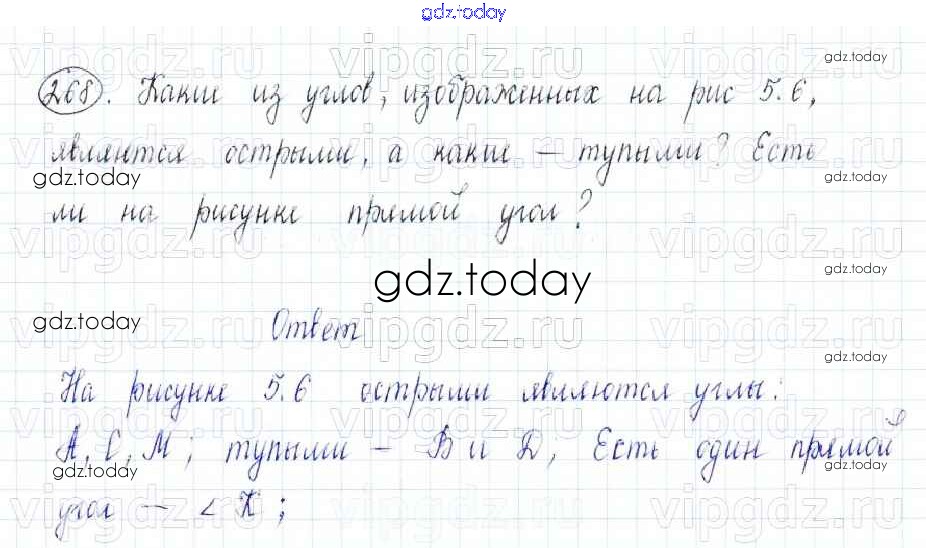 gdz.today
268. Какие из углов, изображенных на рис 5.6,
являются острыми, а какие – тупыми? Есть
ли на рисунке прямой угол?
Ответ
На рисунке 5.6 острыми являются углы:
А, С, М; тупыми – В и D, Есть один прямой
угол – < К;
vipgdz.ru vipgdz.ru vipgdz.ru
gdz.today
gdz.today
gdz.today
gdz.today
gdz.today
gdz.today
gdz.today
gdz.today
gdz.today